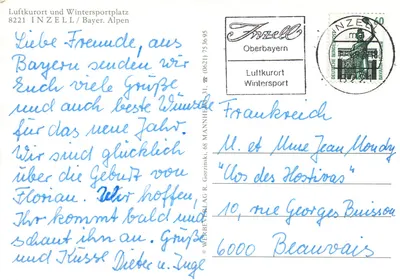 Luftkurort und Wintersportplatz
8221 INZELL / Bayer. Alpen
Liebe Freunde, aus
Bayern senden wir
Euch viele Grüße
und auch beste Wünsche
für das neue Jahr.
Wir sind glücklich
über die Geburt von
Florian. Wir hoffen,
Ihr kommt bald und
schaut ihn an. Grüße
und Küsse Dieter u. Inge
MANNHEIM
Inzell
Oberbayern
Luftkurort
Wintersport
INZELL
60
Frankreich
M. et Mme Jean Mondry
"Clos des Hostivas"
10, rue Georges Buisson
6000 Beauvais